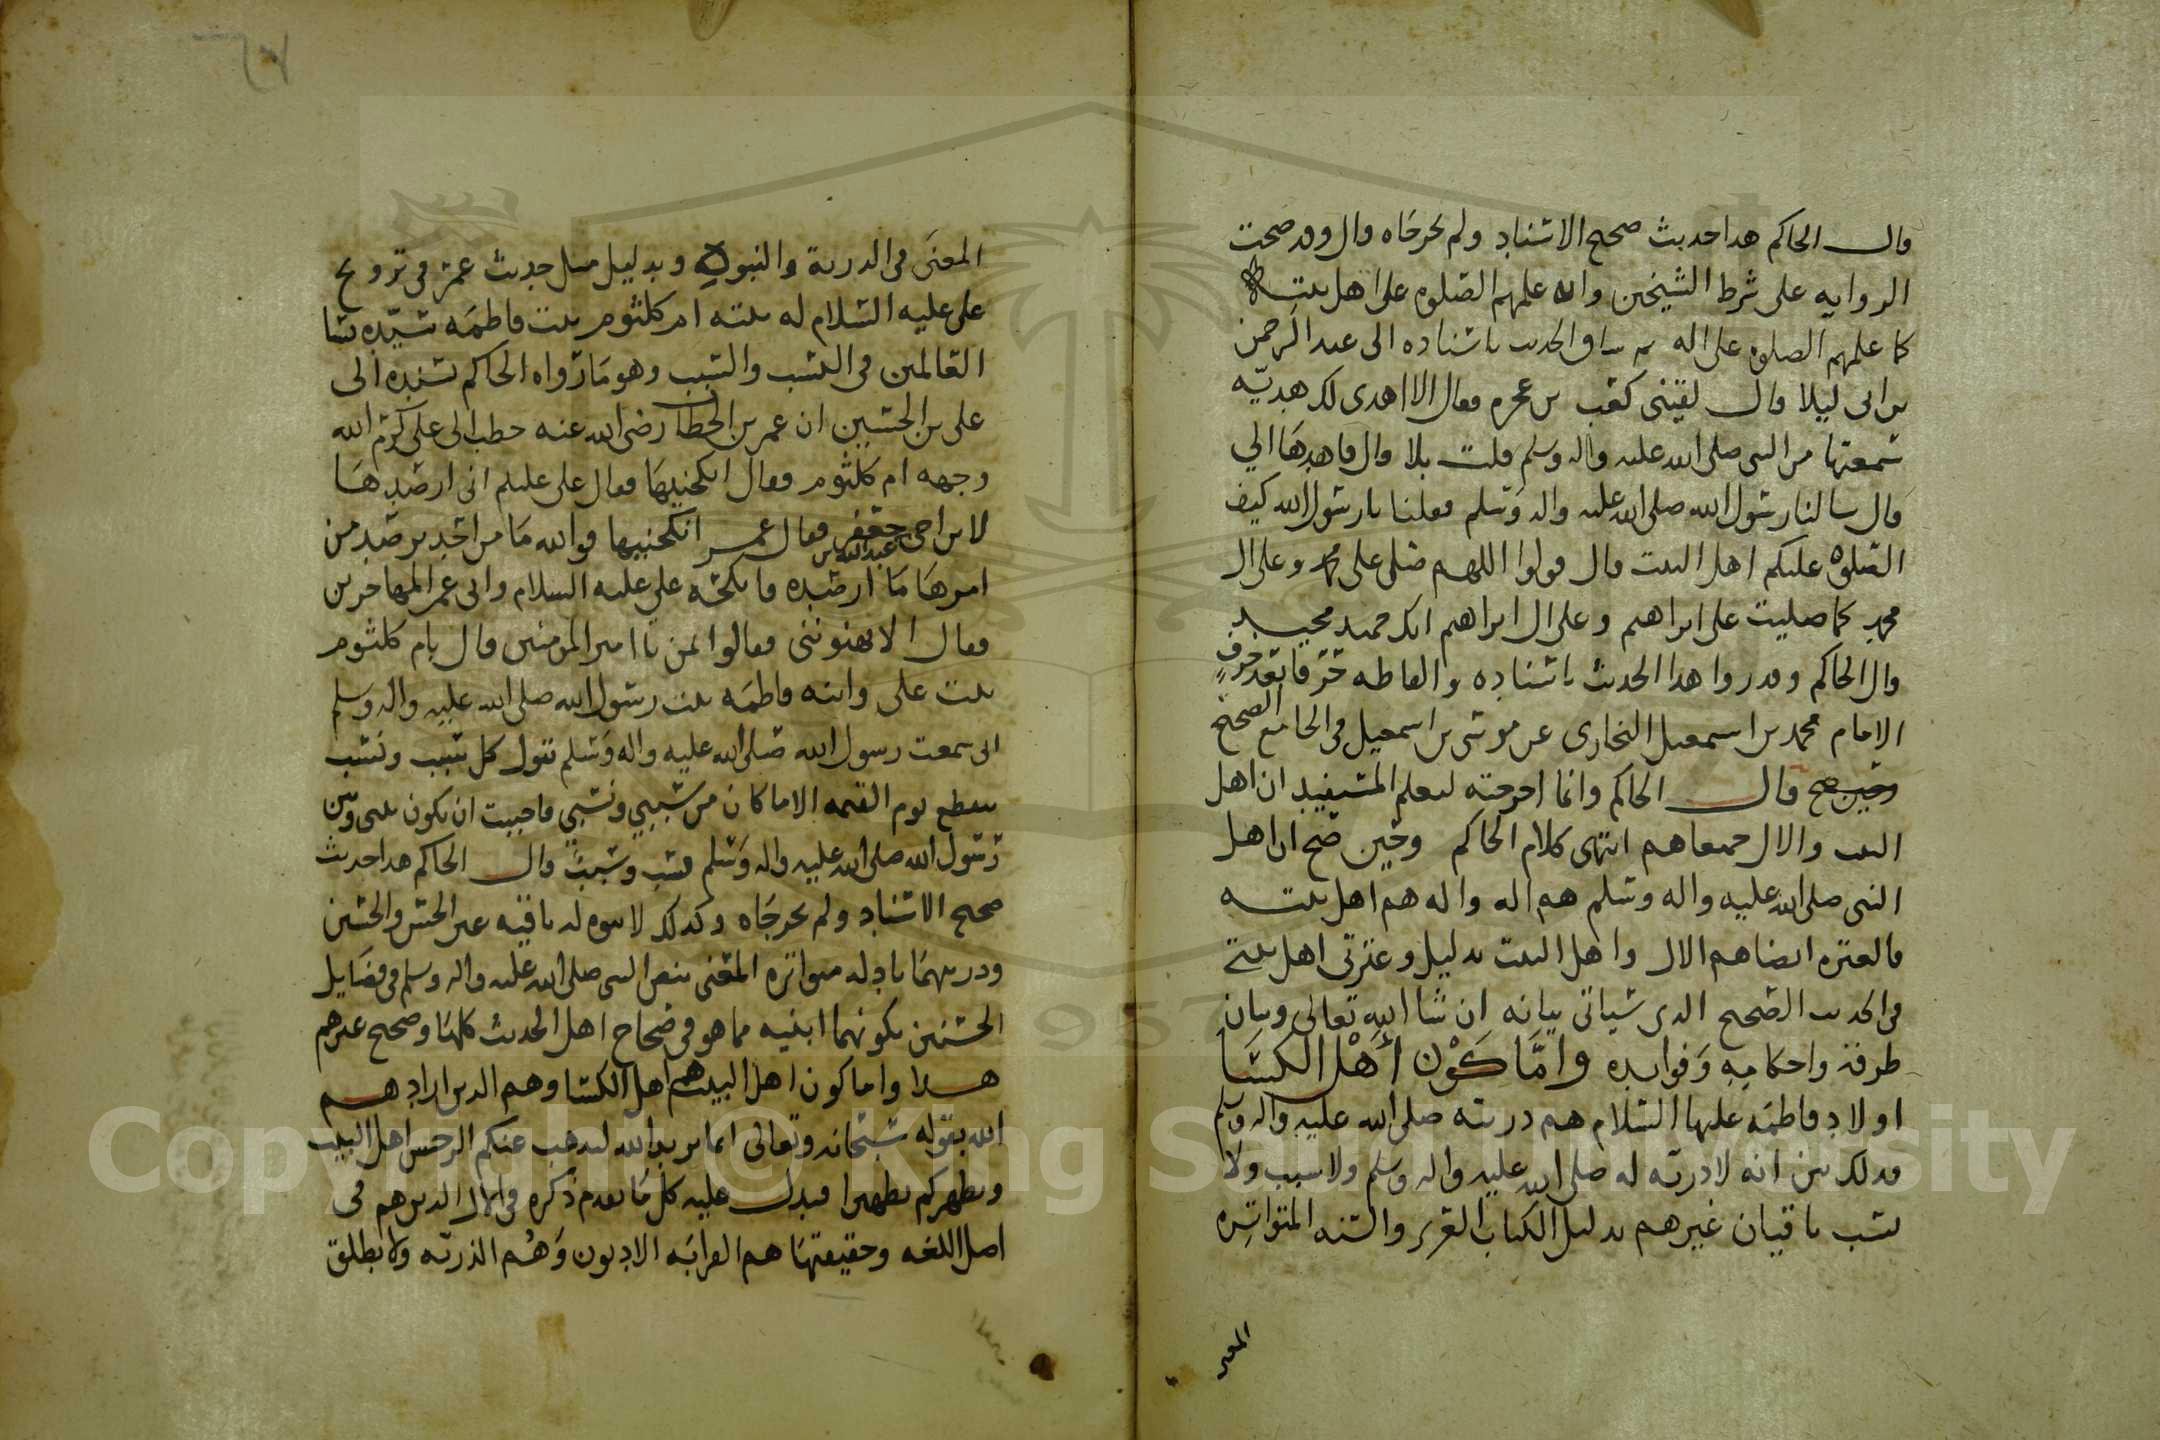 قال الحاكم هذا حديث صحيح الاسناد ولم يخرجاه وال وقد صحت
الروايه على شرط الشيخين وانه علمهم الصلوه على اهل بيته
كما علمهم الصلوه على اله ثم ساق الحديث باسناده الى عبد الرحمن
بن ابي ليلا قال لقيني كعب بن عجره فقال الا اهدى لك هديّه
سمعتها من النبي صلى الله عليه واله وسلم قلت بلا قال فاهدها الي
قال سالنا رسول الله صلى الله عليه واله وسلم فقلنا يا رسول الله كيف
الصلوه عليكم اهل البيت قال قولوا اللهم صلى على محمد وعلى ال
محمد كما صليت على ابراهيم وعلى ال ابراهيم انك حميد مجيد
قال الحاكم وقد روا هذا الحديث باسناده والفاظه حرفا بعد حرفٍ
الامام محمد بن اسمعيل البخارى عن موسى بن اسمعيل في الجامع الصحيح
وحين صح قال الحاكم وانما اخرجته ليعلم المستفيد ان اهل
البيت والال جميعا هم انتهى كلام الحاكم وحين صح ان اهل
النبي صلى الله عليه واله وسلم هم اله واله هم اهل بيته
فالعتره ايضا هم الال واهل البيت بدليل وعترتي اهل بيتي
في الحديث الصحيح الذي سياتي بيانه ان شا الله تعالى وبيان
طرقه واحكامه وفوايده وامَّا كَوْن أهْل الكسَا
اولاد فاطمه عليها السلام هم ذريته صلى الله عليه واله وسلم
فذلك بين انه لا ذريّه له صلى الله عليه واله وسلم ولا سبب ولا
نسب باقيان غيرهم بدليل الكتاب العزيز والسنه المتواتِره
المعنى
المعنَى في الذرية والنبوه وبدليل مثل حديث عمر في تزويج
علي عليه السلام له بنته ام كلثوم بنت فاطمه سيّده نسا
العالمين في النسب والسبب وهو ما رواه الحاكم بسنده الى
علي بن الحسين ان عمر بن الخطاب رضي الله عنه خطب الى علي كرّم الله
وجهه ام كلثوم فقال انكحنيها فقال علي عليلم اني ارصّدها
لابن اخي عبد الله بن جعفر فقال عمر انكحنيها فوالله ما من احدٍ يرصد من
امرها ما ارصّده فانكحه علي عليه السلام واتى عمر المهاجرين
فقال الا تهنونني فقالوا لمن يا امير المومنين قال بام كلثوم
بنت علي وابنه فاطمَه بنت رسول الله صلى الله عليه واله وسلم
اني سمعت رسول الله صلى الله عليه واله وسلم يقول كل سبب ونسب
ينقطع يوم القيمه الا ما كان من سببي ونسبي فاحببت ان يكون بيني وبين
رسول الله صلى الله عليه واله وسلم نسب وسبب قال الحاكم هذا حديث
صحيح الاسناد ولم يخرجاه وكذلك لا بنوه له باقيه غير الحسن والحسين
وذريتهما بادله متواتره المعنى بنص النبي صلى الله عليه واله وسلم في فضايل
الحسنين بكونهما ابنيه مما هو في صحاح اهل الحديث كلها وصحيح غيرهم
هذا واما كون اهل البيت هم اهل الكسا وهم الذين ارادهم
الله بقوله سبحانه وتعالى انما يريد الله ليذهب عنكم الرجس اهل البيت
ويطهركم تطهيرا فيدل عليه كل ما تقدم ذكره في الال الذين هم في
اصل اللغه وحقيقتها هم القرابَه الادنون وَهُم الذريّه ولا يطلق
Copyright © King Saud University
1957